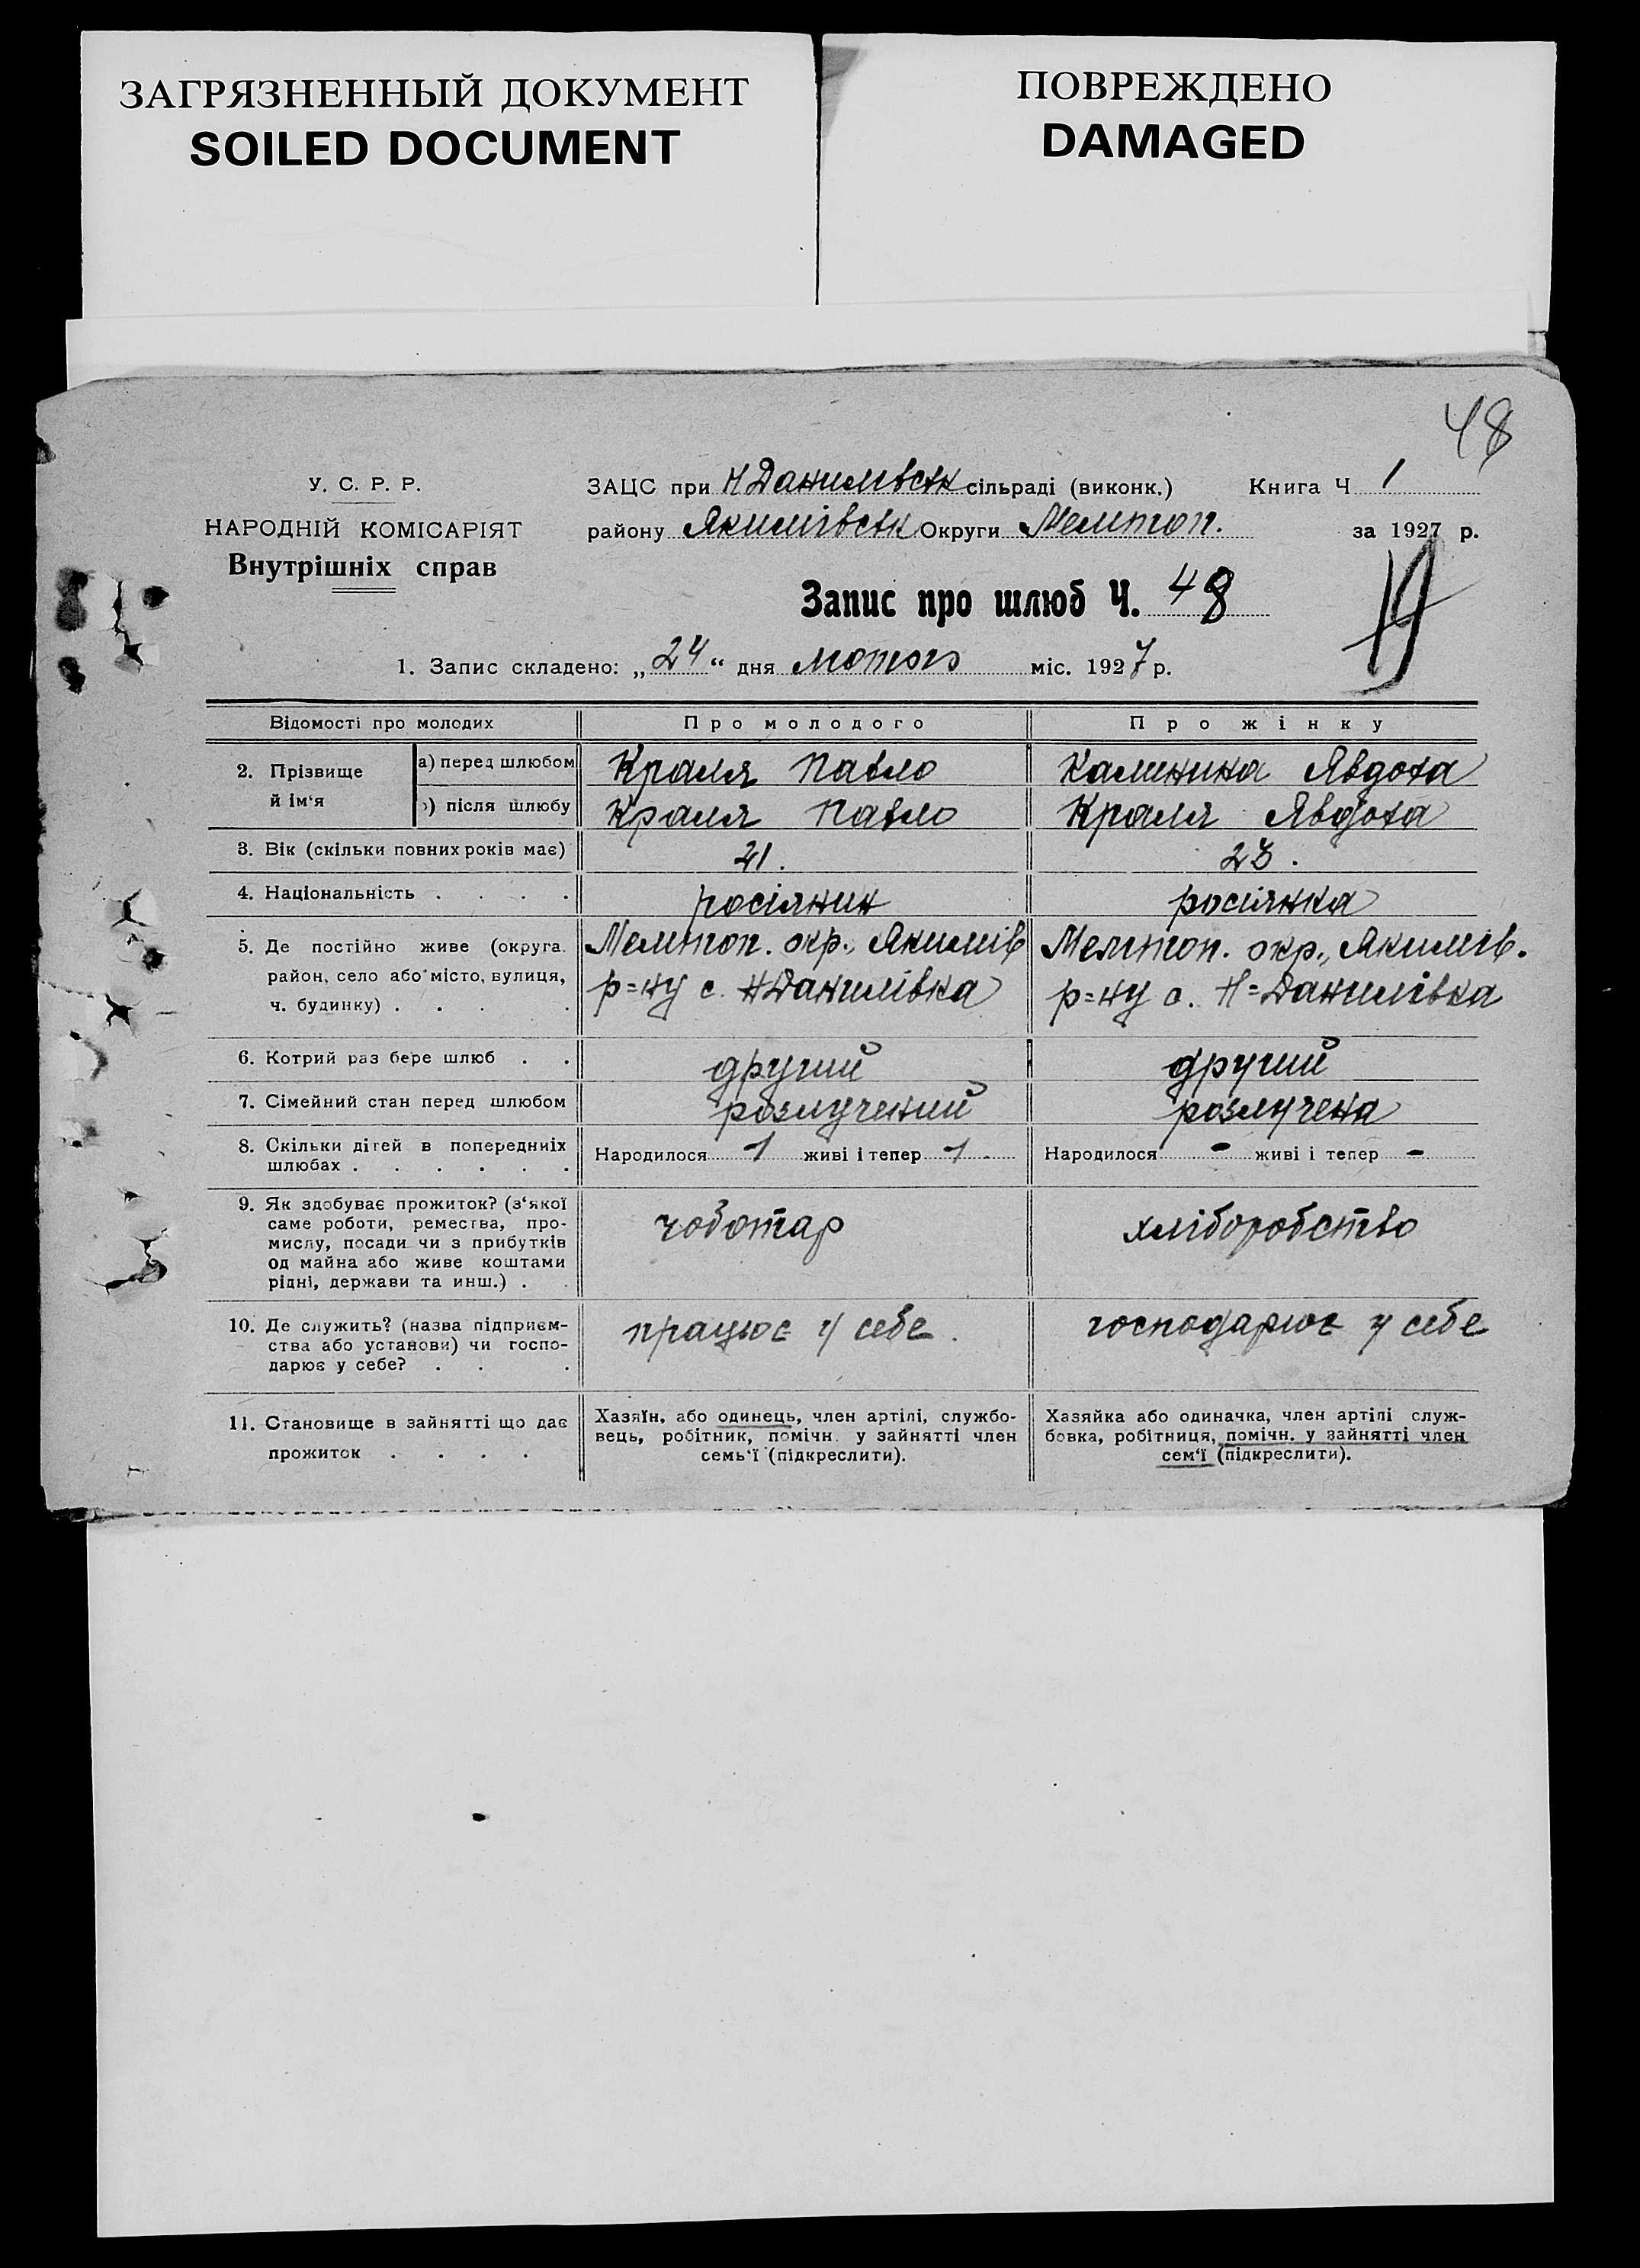 ЗАГРЯЗНЕННЫЙ ДОКУМЕНТ
SOILED DOCUMENT
ПОВРЕЖДЕНО
DAMAGED
48
У. С. Р. Р.
НАРОДНІЙ КОМІСАРІЯТ
Внутрішніх справ
ЗАЦС при Н Данилівськ сільраді (виконк.)
Книга Ч 1
району Якимівськ Округи Мелітоп.
за 1927 р.
Запис про шлюб Ч. 48
1. Запис складено: „24“ дня лютого міс. 1927 р.
Відомості про молодих
Про молодого
Про жінку
2. Прізвище й ім‘я
а) перед шлюбом
Краля Павло
Калинина Явдоха
б) після шлюбу
Краля Павло
Краля Явдоха
3. Вік (скільки повних років має)
21.
23.
4. Національність . . . .
росіянин
росіянка
5. Де постійно живе (округа.
район, село або місто, вулиця,
ч. будинку) . . . .
Мелітоп. окр., Якимів
р=ну с. НДанилівка
Мелітоп. окр., Якимів.
р=ну с. Н=Данилівка
6. Котрий раз бере шлюб . .
другий
другий
7. Сімейний стан перед шлюбом
розлучений
розлучена
8. Скільки дітей в попередніх
шлюбах . . . . . .
Народилося 1 живі і тепер 1.
Народилося - живі і тепер -
9. Як здобуває прожиток? (з‘якої
саме роботи, ремества, про-
мислу, посади чи з прибутків
од майна або живе коштами
рідні, держави та инш.) . .
чоботар
хліборобство
10. Де служить? (назва підприєм-
ства або установи) чи госпо-
дарює у себе? . . .
працює у себе.
господарює у себе
11. Становище в зайнятті що дає
прожиток . . . .
Хазяїн, або одинець, член артілі, службо-
вець, робітник, помічн. у зайнятті член
семь‘ї (підкреслити).
Хазяйка або одиначка, член артілі служ-
бовка, робітниця, помічн. у зайнятті член
сем‘ї (підкреслити).